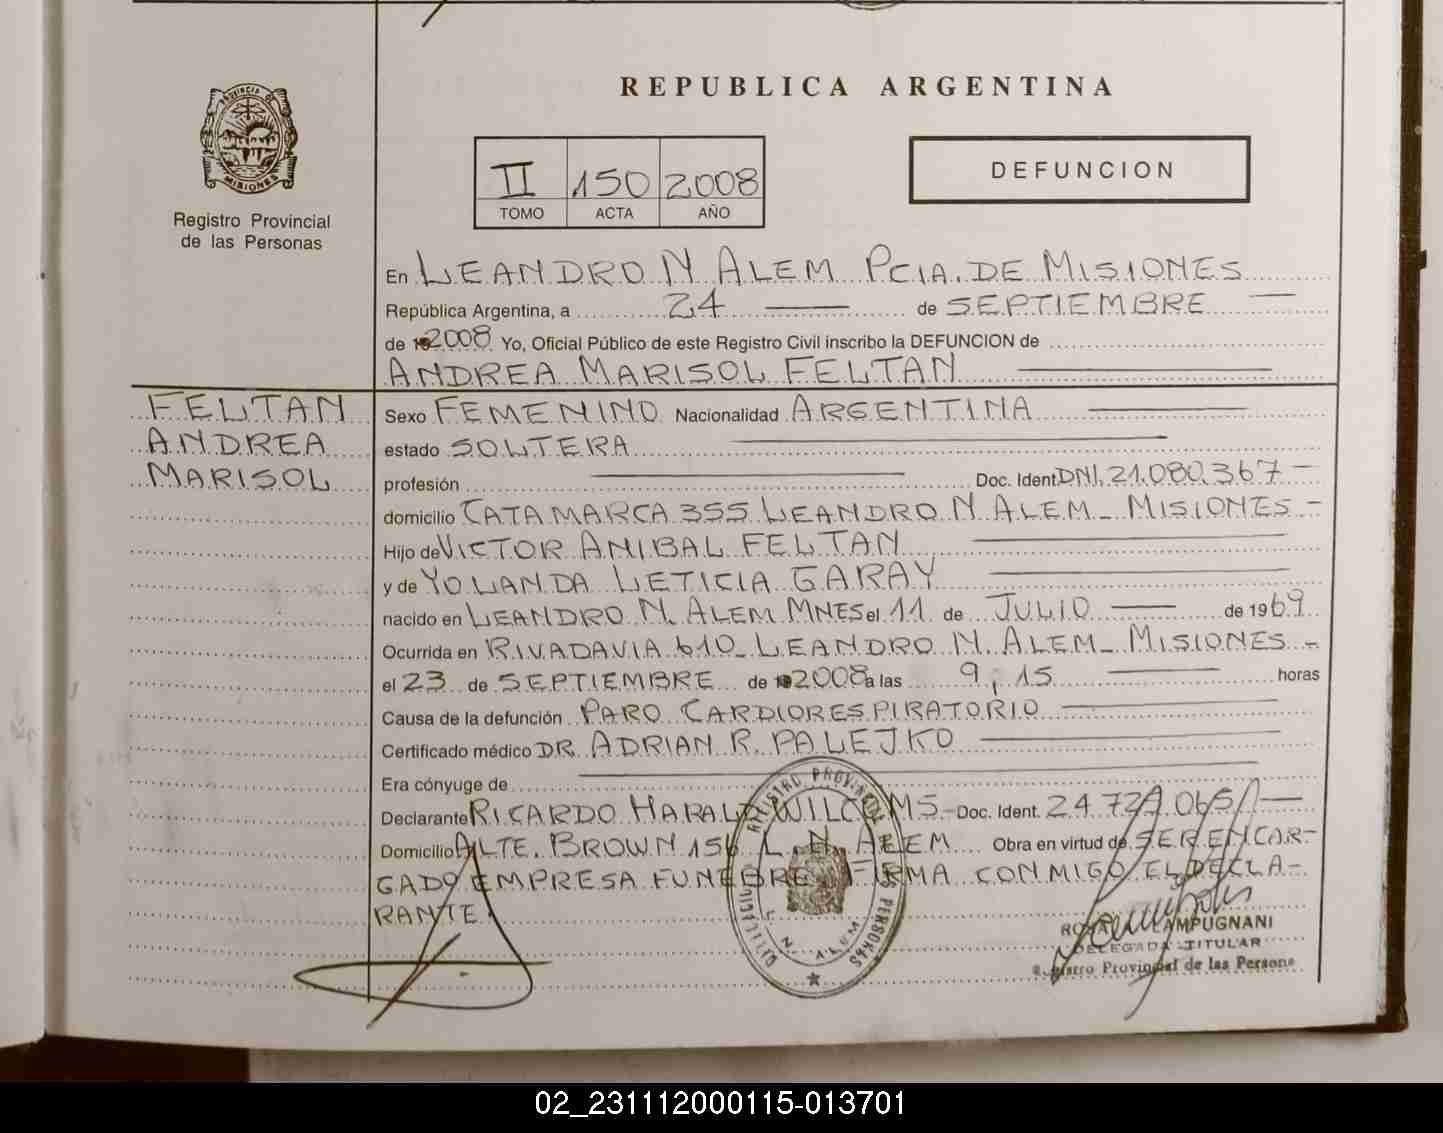 REPUBLICA ARGENTINA
PROVINCIA DE
MISIONES
Registro Provincial
de las Personas
II 150 2008
TOMO ACTA AÑO
DEFUNCION
En LEANDRO N. ALEM PCIA. DE MISIONES
República Argentina, a 24 de SEPTIEMBRE
de 2008 Yo, Oficial Público de este Registro Civil inscribo la DEFUNCION de
ANDREA MARISOL FELTAN
FELTAN
ANDREA
MARISOL
Sexo FEMENINO Nacionalidad ARGENTINA
estado SOLTERA
profesión Doc. Ident. DNI. 21.080.367
domicilio CATAMARCA 355 LEANDRO N ALEM - MISIONES -
Hijo de VICTOR ANIBAL FELTAN
y de YOLANDA LETICIA GARAY
nacido en LEANDRO N. ALEM MNES el 11 de JULIO de 1969
Ocurrida en RIVADAVIA 610 - LEANDRO N. ALEM - MISIONES -
el 23 de SEPTIEMBRE de 2008 a las 9,15 horas
Causa de la defunción PARO CARDIORESPIRATORIO
Certificado médico DR. ADRIAN R. PALEJKO
Era cónyuge de
Declarante RICARDO HARALD Doc. Ident. 24.729.065
Domicilio ALTE. BROWN 156 L. N. ALEM Obra en virtud de SER ENCAR-
GADO EMPRESA FUNEBRE. FIRMA CONMIGO EL DECLA-
RANTE.
REGISTRO PROVINCIAL DE LAS PERSONAS
L. N. ALEM
LAMPUGNANI
DELEGADA TITULAR
Registro Provincial de las Persona
02_231112000115-013701